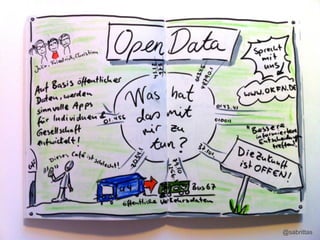 Open Data
Julia, Friedrich, Christian
Sprecht
mit
uns!
WWW.OKFN.DE
Auf Basis öffentlicher
Daten werden
sinnvolle Apps
für Individuen &
Gesellschaft
entwickelt!
Was hat
das mit
mir zu
tun?
"Bessere
informiertere
Entscheidungen
treffen!"
Die Zukunft
ist OFFEN!
Dieses Café ist schlecht!
Bus 67
öffentliche Verkehrsdaten
@sabrittas